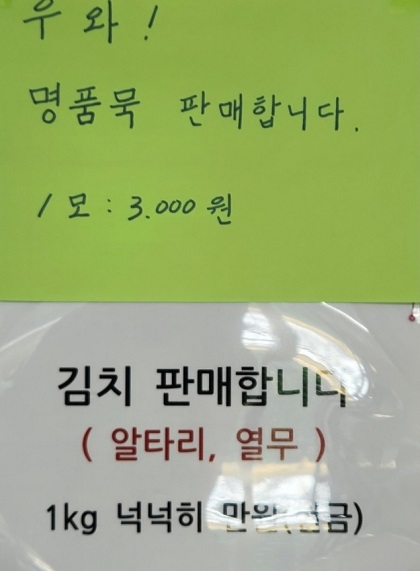 우와!
명품묵 판매합니다.
1모 : 3.000원
김치 판매합니다
( 알타리, 열무 )
1kg 넉넉히 만원(현금)